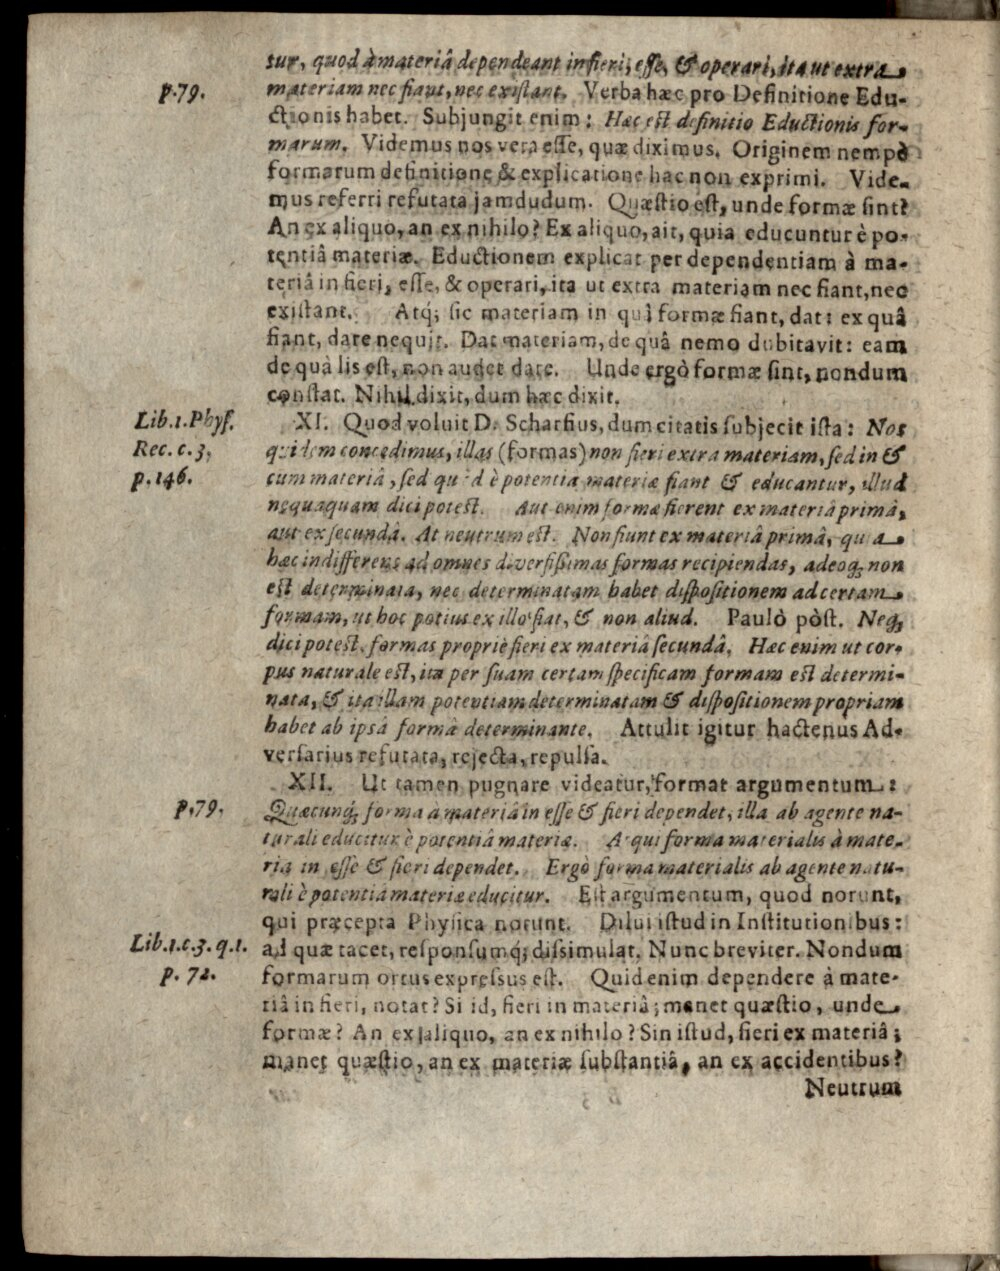 tur, quod à materiâ dependeant in fieri, esse, & operari, ita ut extra
p. 79.
materiam nec fiant, nec existant. Verba hæc pro Definitione Edu-
ctionis habet. Subjungit enim: Hæc est definitio Eductionis for-
marum. Videmus nos vera esse, quæ diximus. Originem nempè
formarum definitione & explicatione hac non exprimi. Vide-
mus referri refutata jamdudum. Quæstio est, unde formæ sint?
An ex aliquo, an ex nihilo? Ex aliquo, ait, quia educuntur è po-
tentiâ materiæ. Eductionem explicat per dependentiam à ma-
teriâ in fieri, esse, & operari, ita ut extra materiam nec fiant, nec
existant. Atq; sic materiam in quâ formæ fiant, dat: ex quâ
fiant, dare nequit. Dat materiam, de quâ nemo dubitavit: eam
de quà lis est, non audet dare. Unde ergò formæ sint, nondum
constat. Nihil dixit, dum hæc dixit.
Lib. 1. Phys.
Rec. c. 3.
p. 146.
XI. Quod voluit D. Scharfius, dum citatis subjecit ista: Nos
quidem concedimus, illas (formas) non fieri extra materiam, sed in &
cum materiâ, sed quod è potentia materiæ fiant & educantur, illud
nequaquam dici potest. Aut enim formæ fierent ex materiâ primâ,
aut ex secundâ. At neutrum est. Non fiunt ex materiâ primâ, quia
hæc indifferens ad omnes diversissimas formas recipiendas, adeoq; non
est determinata, nec determinatam habet dispositionem ad certam
formam, ut hoc potius ex illo fiat, & non aliud. Paulò pòst. Neq;
dici potest, formas propriè fieri ex materiâ secundâ. Hæc enim ut cor-
pus naturale est, ita per suam certam specificam formam est determi-
nata, & ita illam potentiam determinatam & dispositionem propriam
habet ab ipsâ formâ determinante. Attulit igitur hactenus Ad-
versarius refutata, rejecta, repulsa.
XII. Ut tamen pugnare videatur, format argumentum:
p. 79.
Quæcunq; forma à materiâ in esse & fieri dependet, illa ab agente na-
turali educitur è potentiâ materiæ. Atqui forma materialis à mate-
ria in esse & fieri dependet. Ergò forma materialis ab agente natu-
rali è potentiâ materiæ educitur. Est argumentum, quod norunt,
qui præcepta Physica norunt. Dilui istud in Institutionibus:
Lib. 1. c. 3. q. 1.
p. 72.
ad quæ tacet, responsumq; dissimulat. Nunc breviter. Nondum
formarum ortus expressus est. Quid enim dependere à mate-
riâ in fieri, notat? Si id, fieri in materiâ; manet quæstio, unde
formæ? An ex aliquo, an ex nihilo? Sin istud, fieri ex materiâ;
manet quæstio, an ex materiæ substantiâ, an ex accidentibus?
Neutrum